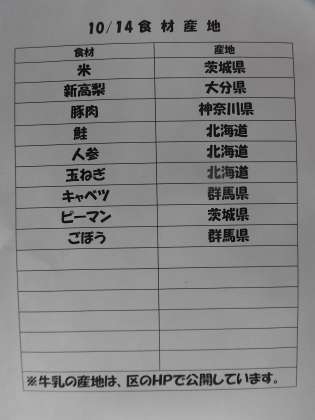 10/14 食材産地
食材 産地
米 茨城県
新高梨 大分県
豚肉 神奈川県
鮭 北海道
人参 北海道
玉ねぎ 北海道
キャベツ 群馬県
ピーマン 茨城県
ごぼう 群馬県
※牛乳の産地は、区のHPで公開しています。